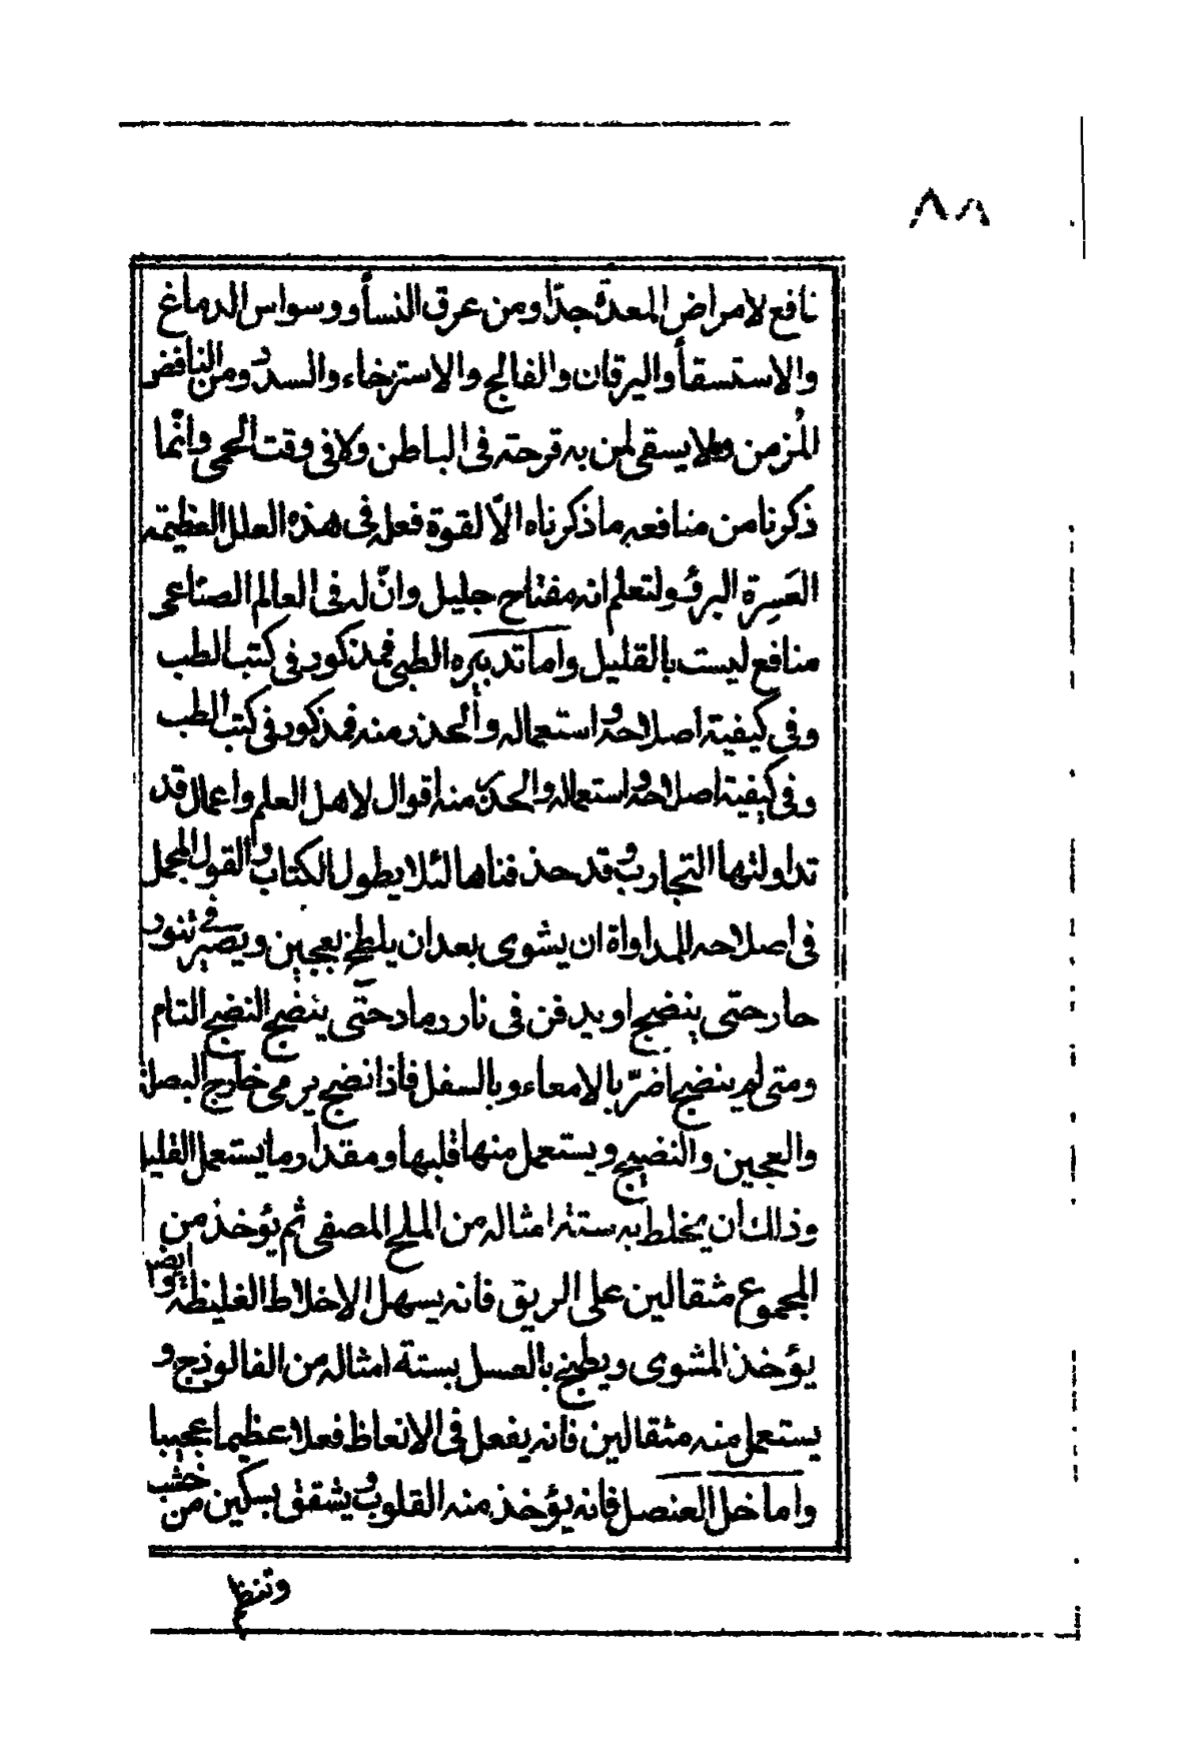 ٨٨
نافع لامراض المعدة جدّا ومن عرق النسأ ووسواس الدماغ
والاستسقأ واليرقان والفالج والاسترخاء والسدد ومن النافض
المُزمن ولا يسقى لمن به قرحته فى الباطن ولا فى وقت الحمى وانّما
ذكرنا من منافعه ما ذكرناه الّا لقوة فعله فى هذه العلل العظيمة
العَسِرة البرؤ ولتعلم انه مفتاح جليل وانّ له فى العالم الصناعى
منافع ليست بالقليل واما تدبيره الطبى فمذكور فى كتب الطب
وفى كيفية اصلاحه واستعماله وألحذر منه فمذكور فى كتب الطب
وفى كيفية اصلاحه واستعماله والحذر منه اقوال لاهل العلم واعمال قد
تداولتها التجارب وقد حذفناها لئلا يطول الكتاب والقول المجمل
فى اصلاحه للمداواة ان يشوى بعد ان يلطخ بعجين ويصير فى تنور
حار حتى ينضج او يدفن فى نار رماد حتّى ينضج النضج التام
ومتى لم ينضج اضرّ بالامعاء وبالسفل فاذا نضج يرمى خارج البصلة
والعجين والنضيج ويستعمل منها قلبها ومقدار ما يستعمل القليل
وذلك ان يخلط به ستة امثاله من الملح المصفى ثم يؤخذ من
المجموع مثقالين على الريق فانه يسهل الاخلاط الغليظة وايضا
يؤخذ المشوى ويطبخ بالعسل بستة امثاله من الفالوذج و
يستعمل منه مثقالين فانه يفعل فى الانعاظ فعلا عظيما عجيبا
واما خل العنصل فانه يؤخذ منه القلوب ويشقق بسكين من خشب
وتنظم